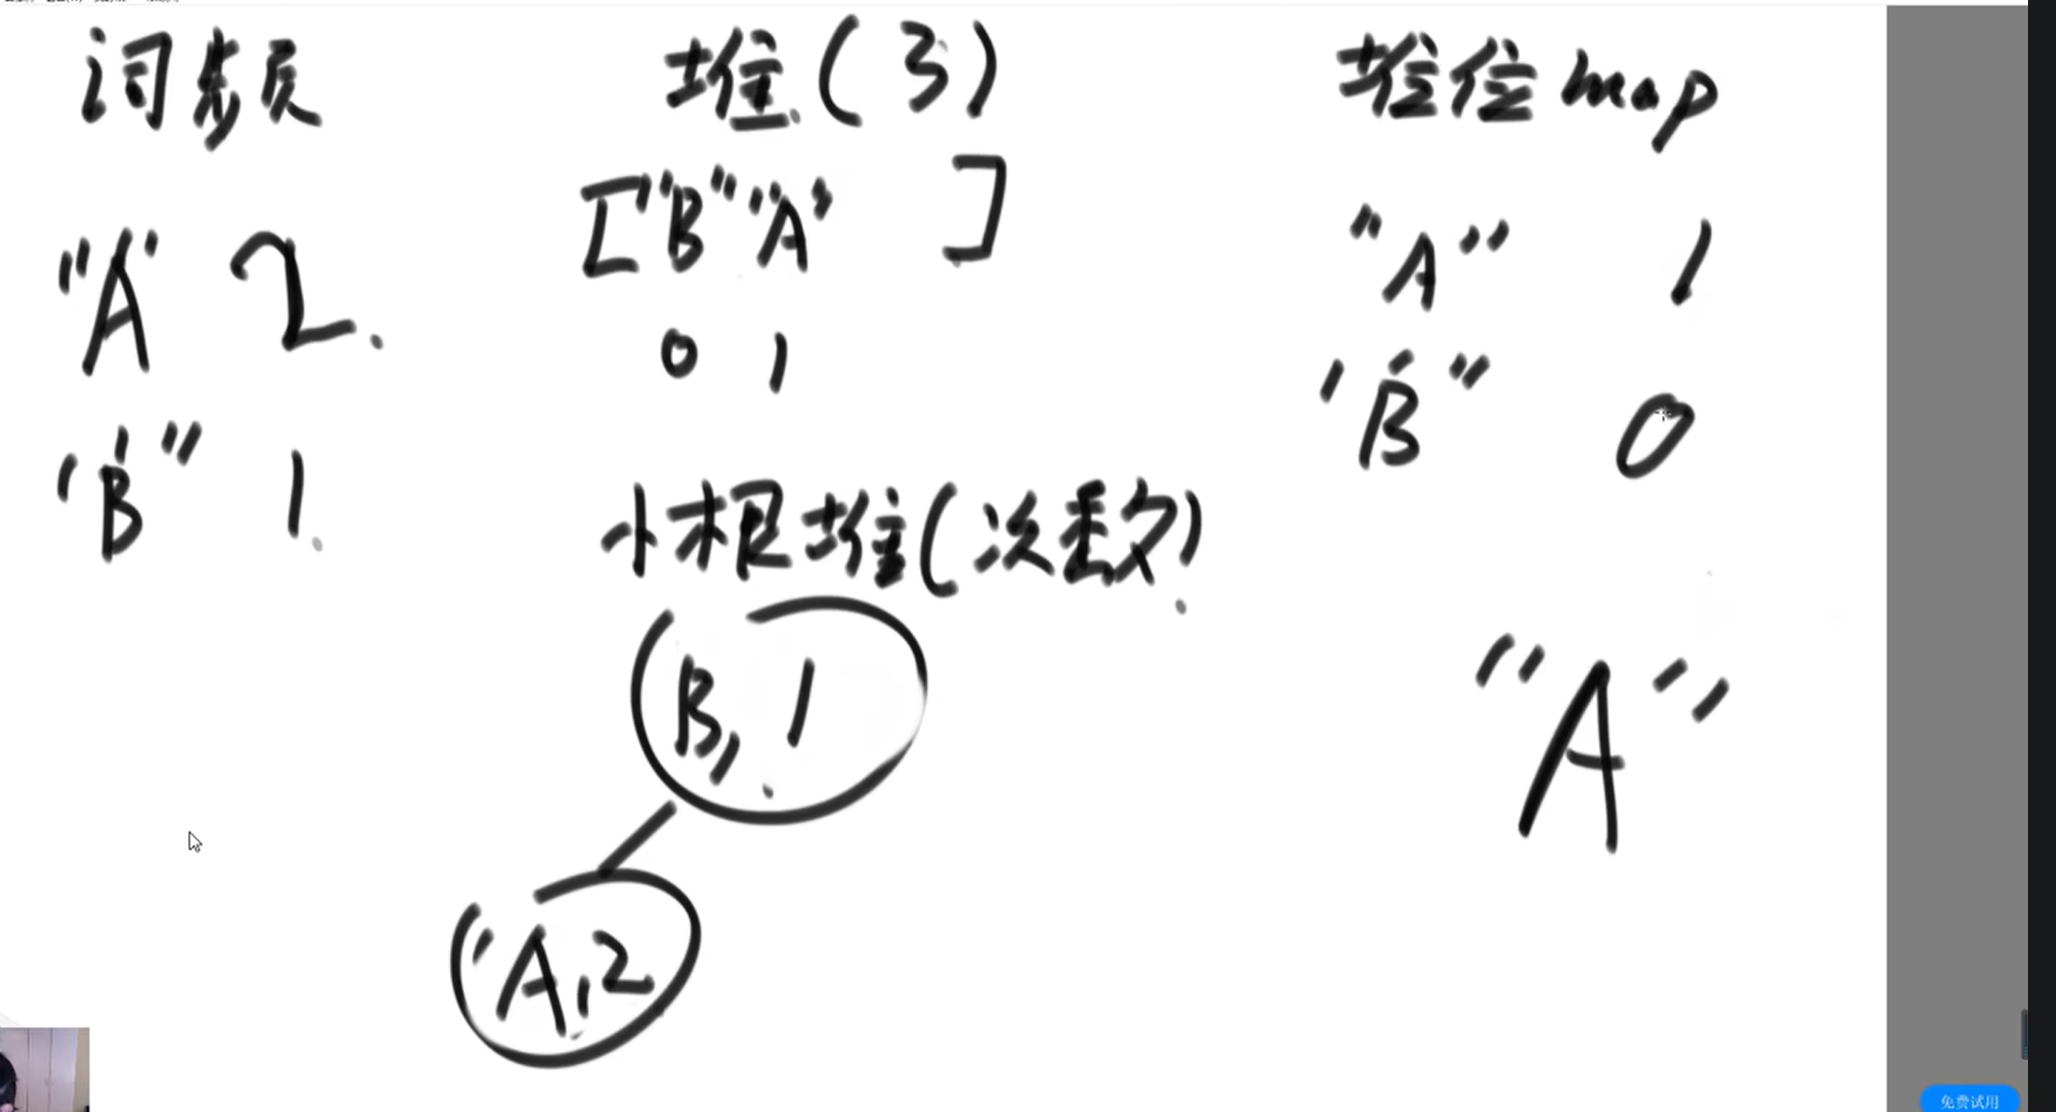 词频
"A" 2.
"B" 1.
堆(3)
["B" "A" ]
0 1
小根堆(次数)
B, 1
"A, 2
堆位map
"A" 1
"B" 0
"A"
免费试用